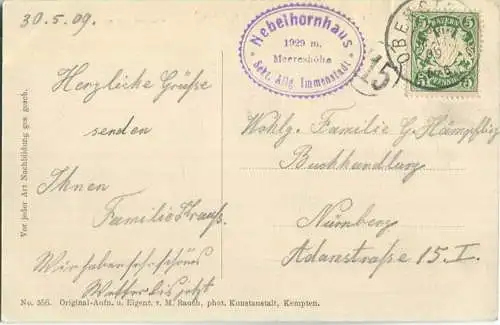 30.5.09.
Nebelhornhaus
1929 m.
Meereshöhe
Sekt. Allg. Immenstadt.
15
BAYERN
5 5
PFENNIG
Herzliche Grüsse
senden
Ihnen
Familie Krauß.
Wir haben sehr schönes
Wetter bis jetzt
Wohlg. Familie G. Hämpfling
Buchhandlung
Nürnberg
Adamstraße 15. I.
Vor jeder Art Nachbildung ges gesch.
No. 556. Original-Aufn. u. Eigent. v. M. Rauch, phot. Kunstanstalt, Kempten.